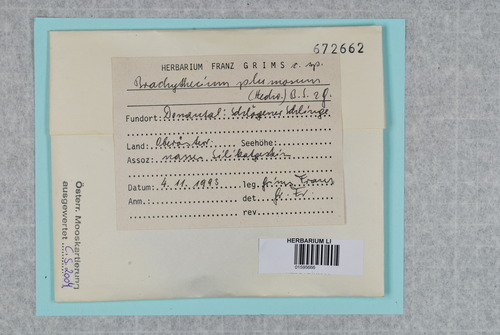 672662
HERBARIUM FRANZ GRIMS c. sp.
Brachythecium plumosum
(Hedw.) B.S. & G.
Fundort: Donautal: Schlögener Schlinge
Land: Oberöster. Seehöhe:
Assoz: nasses Silikatgestein
Datum: 4.11.1993 leg. Grims Franz
Anm.: det. Gr. Fr.
rev.
Österr. Mooskartierung
ausgewertet C.S. 2004
HERBARIUM LI